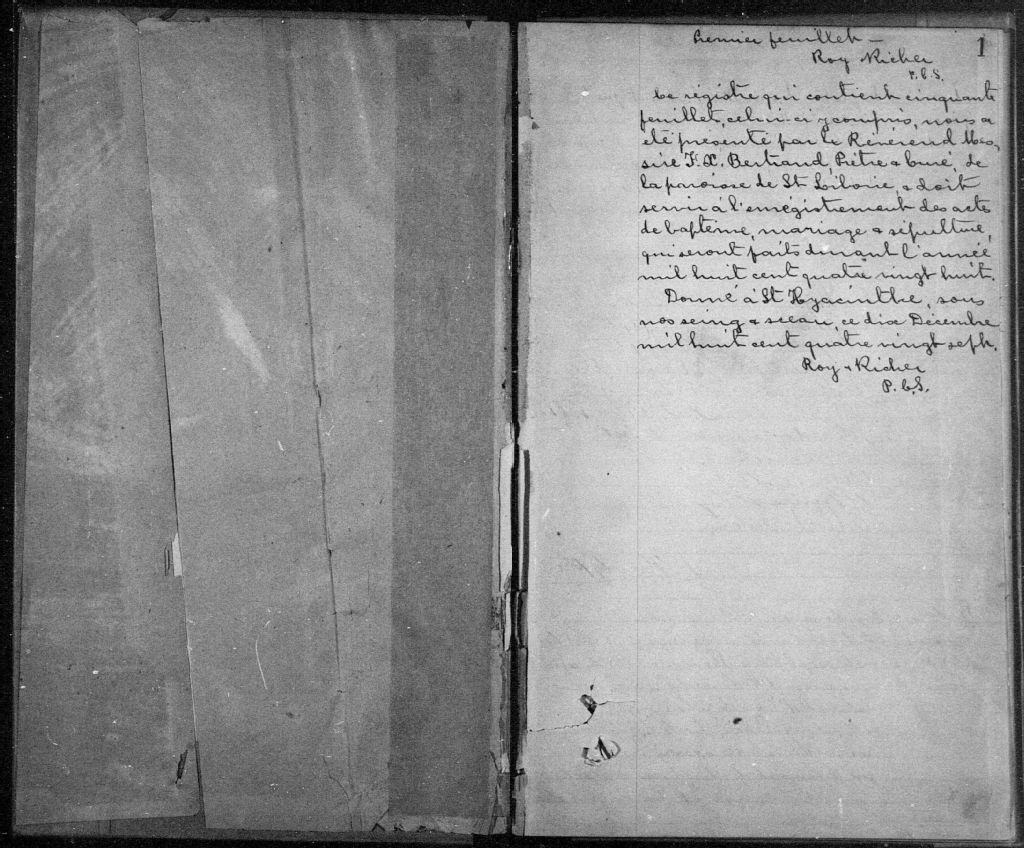 Premier feuillet —
1
Roy & Richer
P.C.S.
Ce régistre qui contient cinquante
feuillets, celui-ci y compris, nous a
été présenté par le Révérend Mes-
sire F. X. Bertrand, Prêtre & Curé, de
la paroisse de St Liboire, & doit
servir à l'enrégistrement des actes
de baptême, mariage & sépulture,
qui seront faits durant l'année
mil huit cent quatre vingt huit.
Donné à St Hyacinthe, sous
nos seing & sceau, ce dix Décembre
mil huit cent quatre vingt sept.
Roy & Richer
P.C.S.